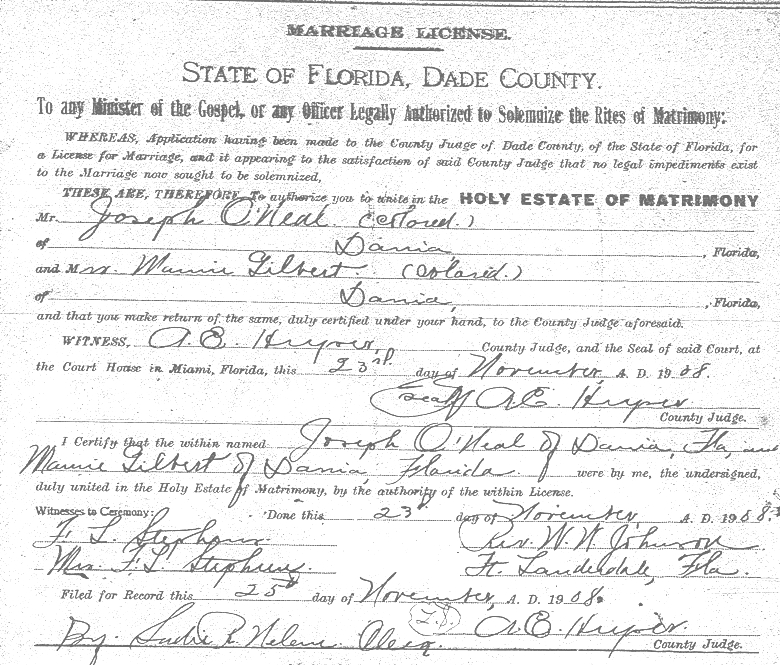 MARRIAGE LICENSE.
STATE OF FLORIDA, DADE COUNTY.
To any Minister of the Gospel, or any Officer Legally Authorized to Solemnize the Rites of Matrimony:
WHEREAS, Application having been made to the County Judge of Dade County, of the State of Florida, for
a License for Marriage, and it appearing to the satisfaction of said County Judge that no legal impediments exist
to the Marriage now sought to be solemnized,
THESE ARE, THEREFORE, To authorize you to unite in the HOLY ESTATE OF MATRIMONY
Mr. Joseph O'Neal (Colored.)
of Dania, Florida,
and Mrs. Mamie Gilbert. (Colored.)
of Dania, Florida,
and that you make return of the same, duly certified under your hand, to the County Judge aforesaid.
WITNESS, A. E. County Judge, and the Seal of said Court, at
the Court House in Miami, Florida, this 23rd day of November, A. D. 1908.
Seal A. E.
County Judge.
I Certify that the within named Joseph O'Neal of Dania, Fla, and
Mamie Gilbert of Dania, Florida were by me, the undersigned,
duly united in the Holy Estate of Matrimony, by the authority of the within License.
Witnesses to Ceremony: Done this 23 day of November, A. D. 1908.
F. L. Stephens Rev. W. W. Johnson
Mrs. F. L. Stephens Ft. Lauderdale, Fla.
Filed for Record this 25 day of November, A. D. 1908.
A. E.
By County Judge.